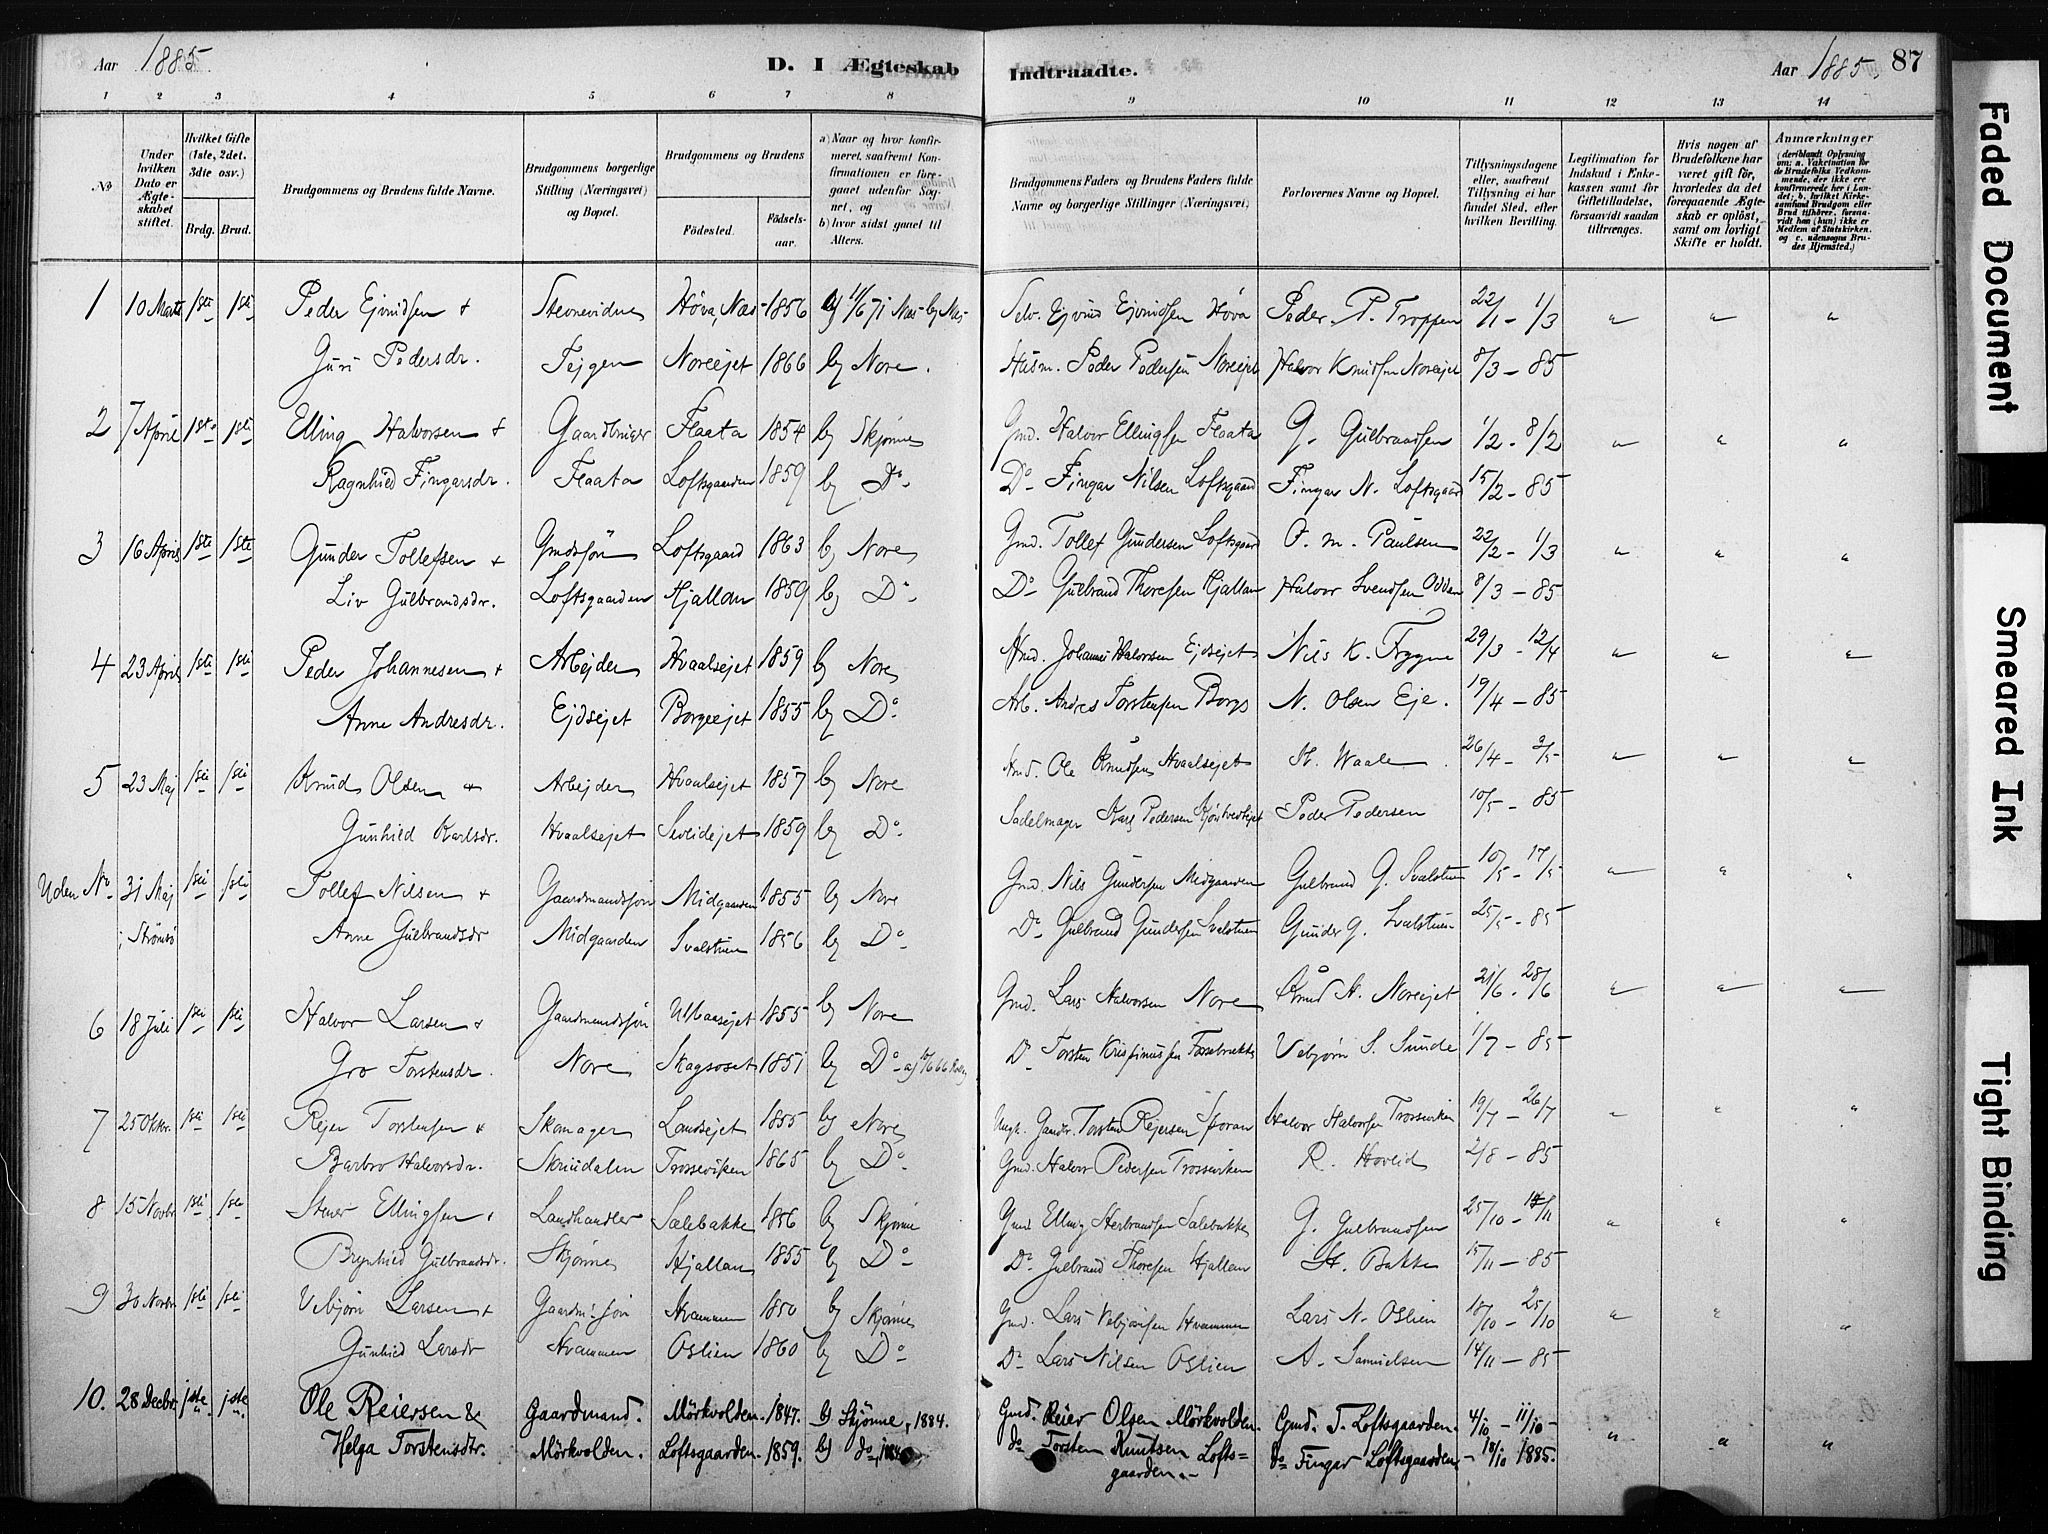 Aar 1885 D. I Ægteskab Indtraadte. Aar 1885. 87
1 2 3 4 5 6 7 8 9 10 11 12 13 14
No
Under hvilken Dato er Ægteskabet stiftet.
Hvilket Gifte (1ste, 2det. 3die osv.)
Brdg. Brud.
Brudgommens og Brudens fulde Navne.
Brudgommens borgerlige Stilling (Næringsvei) og Bopæl.
Brudgommens og Brudens
Födested. Födselsaar.
a) Naar og hvor konfirmeret, saafremt Konfirmationen er foregaaet udenfor Sognet, og
b) hvor sidst gaaet til Alters.
Brudgommens Faders og Brudens Faders fulde Navne og borgerlige Stillinger (Næringsvei)
Forlovernes Navne og Bopæl.
Tillysningsdagene eller, saafremt Tillysning ei har fundet Sted, efter hvilken Bevilling.
Legitimation for Indskud i Enkekassen samt for Giftetilladelse, forsaavidt saadan tiltrænges.
Hvis nogen af Brudefolkene har været gift för, hvorledes da det foregaaende Ægteskab er oplöst, samt om lovligt Skifte er holdt.
Anmærkninger
(deriblandt Oplysning om: a. Vakcination for de Brudefolks Vedkommende, der ikke ere konfirmerede her i Landet; b. hvilket Kirkesamfund Brudgom eller Brud tilhörer, forsaavidt han (hun) ikke er Medlem af Statskirken. og c. udensogns Brudes Hjemsted.)
1 10 Marts 1ste 1ste Peder Ejvindsen + Høva, Næs 1856 Ejvind Ejvindsen Høva Peder P. Troppen 22/1 - 1/3 " " "
Guri Pedersdr. Tejgen Noreejet 1866 b) Nore. Husm. Peder Pedersen Noreejet Halvor Knudsen Noreejet 8/3 - 85
2 7 April 1ste 1ste Elling Halvorsen + Gaardbruger Flaata 1854 b) Skjønne Gmd. Halvor Ellingsen Flaata G. Gulbrandsen 1/2 - 8/2 " " "
Ragnhild Fingarsdr. Flaata Loftsgaarden 1859 b) Do Do Fingar Nilsen Loftsgaard Fingar N. Loftsgaard 15/2 - 85
3 16 April 1ste 1ste Gunder Tollefsen + Gmdssøn Loftsgaard 1863 b) Nore Gmd. Tollef Gundersen Loftsgaard O. M. Paulsen 22/2 - 1/3 " " "
Liv Gulbrandsdr. Loftsgaarden Hjallan 1859 b) Do Do Gulbrand Thoresen Hjallan Halvor Svendsen Odden 8/3 - 85
4 23 April 1ste 1ste Peder Johannesen + Arbejder Hvaalsejet 1859 b) Nore Hmd. Johannes Halvorsen Ejdsejet Nils K. Frygne 29/3 - 12/4 " " "
Anne Andresdr. Ejdsejet Borgeejet 1855 b) Do Arb. Andres Torstensen Borge N. Olsen Eje. 19/4 - 85
5 23 Maj 1ste 1ste Knud Olsen + Arbejder Hvaalsejet 1857 b) Nore Hmd. Ole Knudsen Hvaalsejet H. Waale 26/4 - 3/5 " " "
Gunhild Karlsdr. Hvaalsejet Sevleejet 1859 b) Do Sadelmager Karl Pedersen Peder Pedersen 10/5 - 85
Uden No 31 Maj 1ste 1ste Tollef Nilsen + Gaardmandssøn Midgaarden 1855 b) Nore Gmd. Nils Gundersen Midgaarden Gulbrand G. Svalstuen 10/5 - 17/5 " " "
Anne Gulbrandsdr Midgaarden Svalstuen 1856 b) Do Do Gulbrand Gundersen Svalstuen Gunder G. Svalstuen 25/5 - 85
6 18 Juli 1ste 1ste Halvor Larsen + Gaardmandssøn Ulbaasejet 1855 b) Nore Gmd. Lars Halvorsen Nore Knud H. Noreejet 21/6 - 28/6 " " "
Gro Torstensdr. Nore Skagsoset 1851 b) Do Do Torsten Vebjørn S. Sunde 1/7 - 85
7 25 Oktbr. 1ste 1ste Rejer Torstensen + Skomager Landsejet 1855 b) Nore Torsten Rejersen Halvor Halvorsen Trossviken 19/7 - 26/7 " " "
Barbro Halvorsdr. Skrudalen Trosseviken 1865 b) Do Gmd. Halvor Pedersen Trosseviken R. Hovlid 2/8 - 85
8 15 Novbr 1ste 1ste Stener Ellingsen + Landhandler Sælebakke 1856 b) Skjønne Gmd Elling Herbrandsen Sælebakke G. Gulbrandsen 25/10 - 1/11 " " "
Brynhild Gulbrandsdr. Skjønne Hjallan 1855 b) Do Do Gulbrand Thoresen Hjallen H. Bakke 15/11 - 85
9 30 Novbr 1ste 1ste Vebjørn Larsen + Gaardm.søn Hvammen 1850 b) Skjønne Gmd. Lars Vebjørnsen Hvammen Lars N. Oslien 18/10 - 25/10 " " "
Gunhild Larsdr Hvammen Oslien 1860 b) Do Do Lars Nilsen Oslien A. Samuelsen 14/11 - 85
10. 28 Decbr. 1ste. 1ste. Ole Reiersen & Gaardmand. Mörkvolden. 1847. b) Skjönne, 1884. Gmd. Reier Olsen Mörkvolden. Gmd. T. Loftsgaarden. 4/10 - 11/10 - " " "
Helga Torstensdtr. Mörkvolden. Loftsgaarden. 1859. b) do, do Torsten Knutsen Loftsgaarden. do Fingar Loftsgaarden. - 18/10 1885.
Faded Document
Smeared Ink
Tight Binding